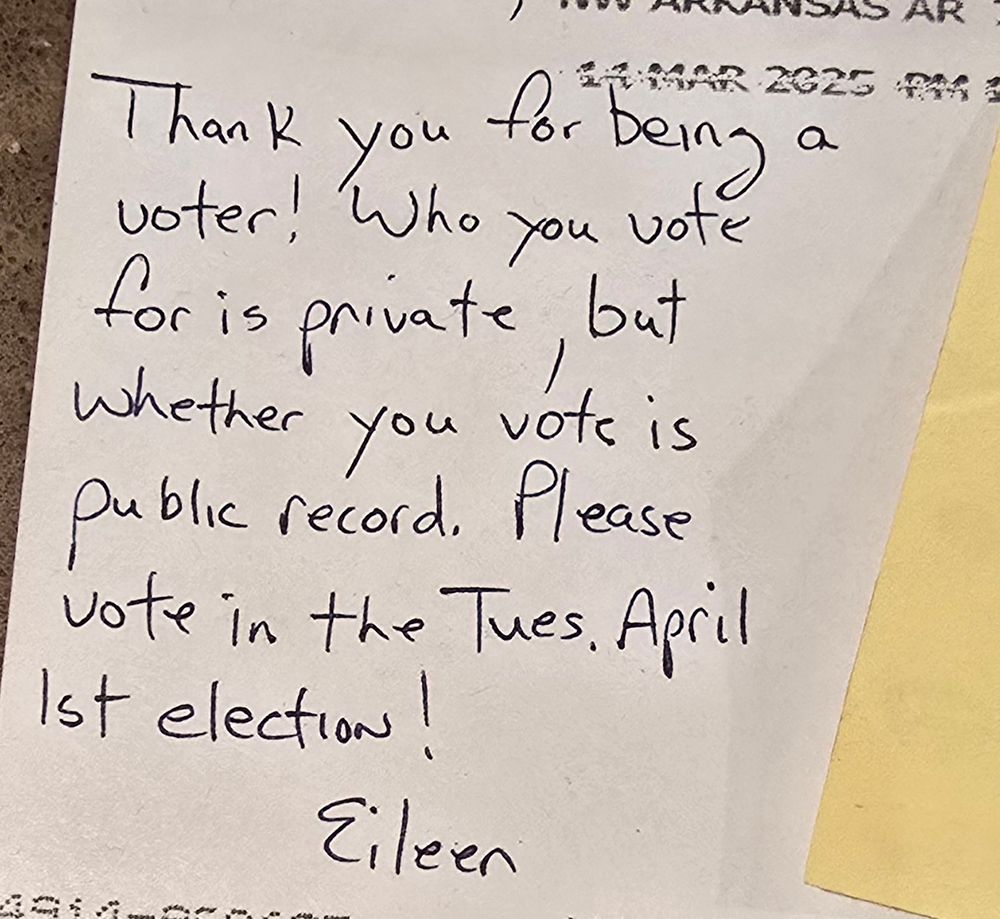 NW ARKANSAS AR
14 MAR 2025 PM
Thank you for being a
voter! Who you vote
for is private, but
whether you vote is
public record. Please
vote in the Tues. April
1st election!
Eileen